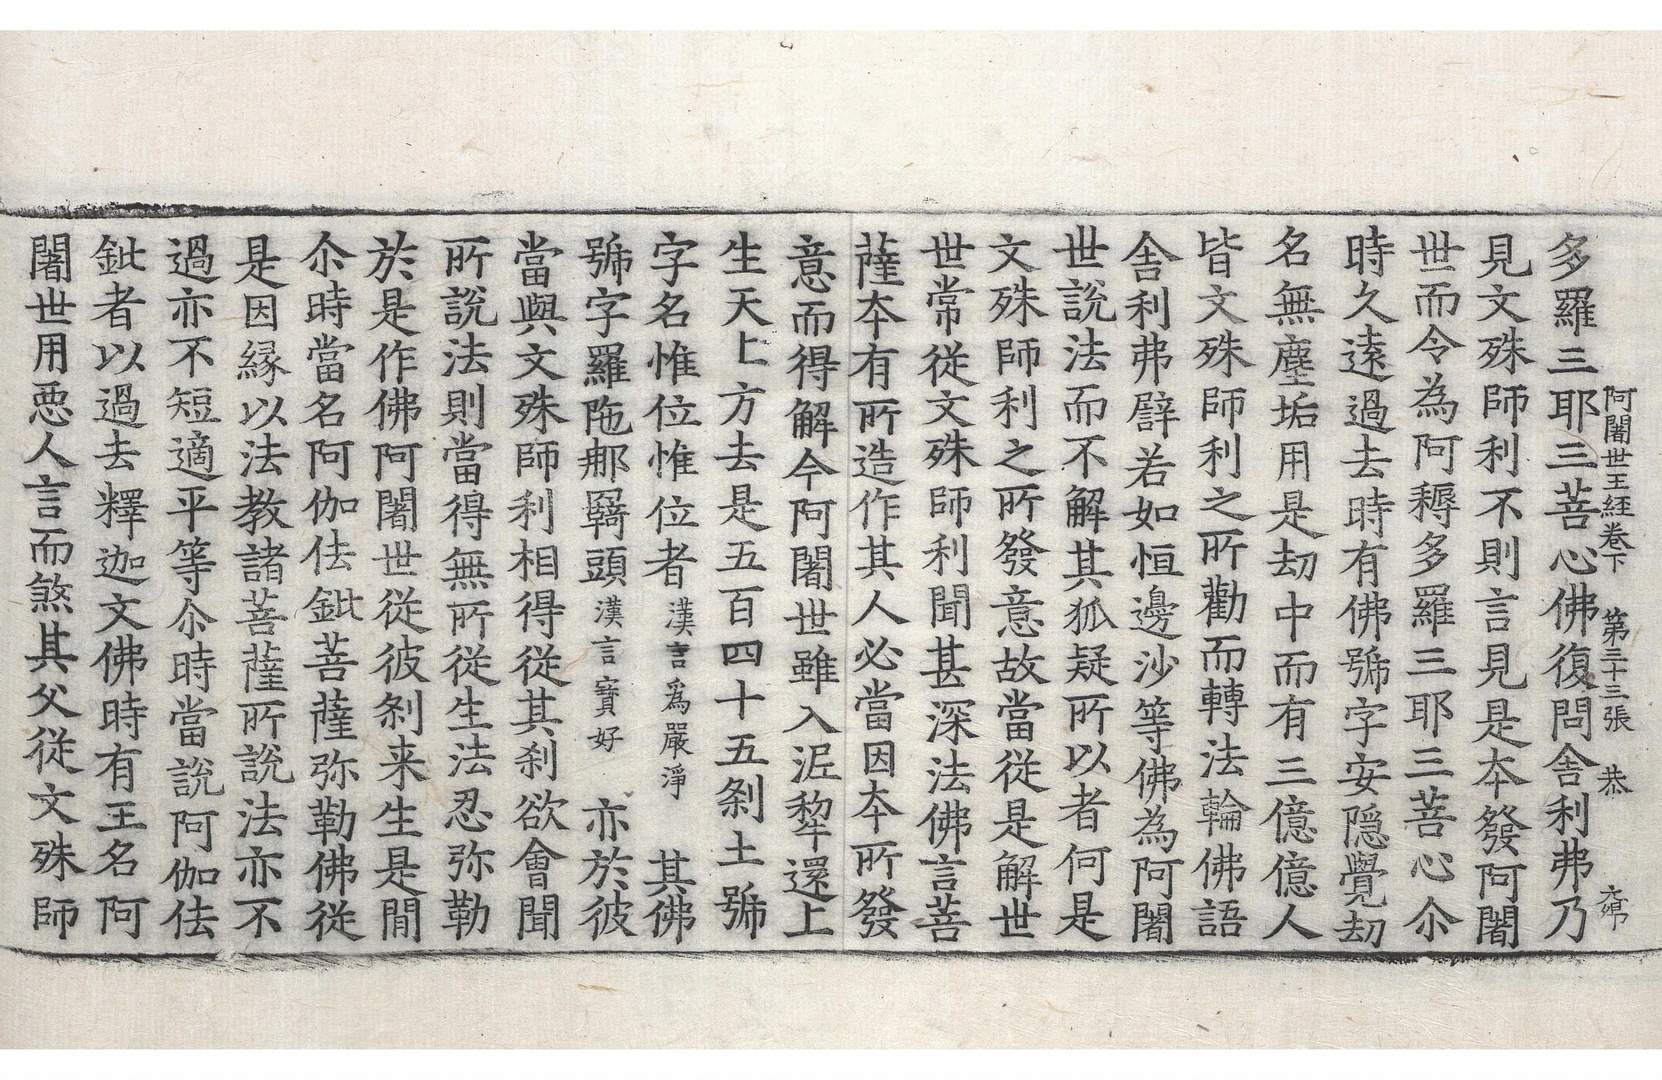 阿闍世王経卷下　第三十三張　恭
多羅三耶三菩心佛復問舎利弗乃
見文殊師利不則言見是夲發阿闍
世而令為阿耨多羅三耶三菩心尒
時久遠過去時有佛號字安隠覺刼
名無塵垢用是刼中而有三億億人
皆文殊師利之所勸而轉法輪佛語
舎利弗辟若如恒邊沙等佛為阿闍
世說法而不解其狐疑所以者何是
文殊師利之所發意故當從是解世
世常從文殊師利聞甚深法佛言菩
薩夲有所造作其人必當因夲所發
意而得解今阿闍世雖入泥犂還上
生天上方去是五百四十五剎土號
字名惟位惟位者漢言為嚴淨其佛
號字羅陁那羇頭漢言寶好亦於彼
當與文殊師利相得從其剎欲會聞
所說法則當得無所從生法忍弥勒
於是作佛阿闍世從彼剎来生是閒
尒時當名阿伽佉鈚菩薩弥勒佛從
是因縁以法教諸菩薩所說法亦不
過亦不短適平等尒時當說阿伽佉
鈚者以過去釋迦文佛時有王名阿
闍世用悪人言而煞其父從文殊師